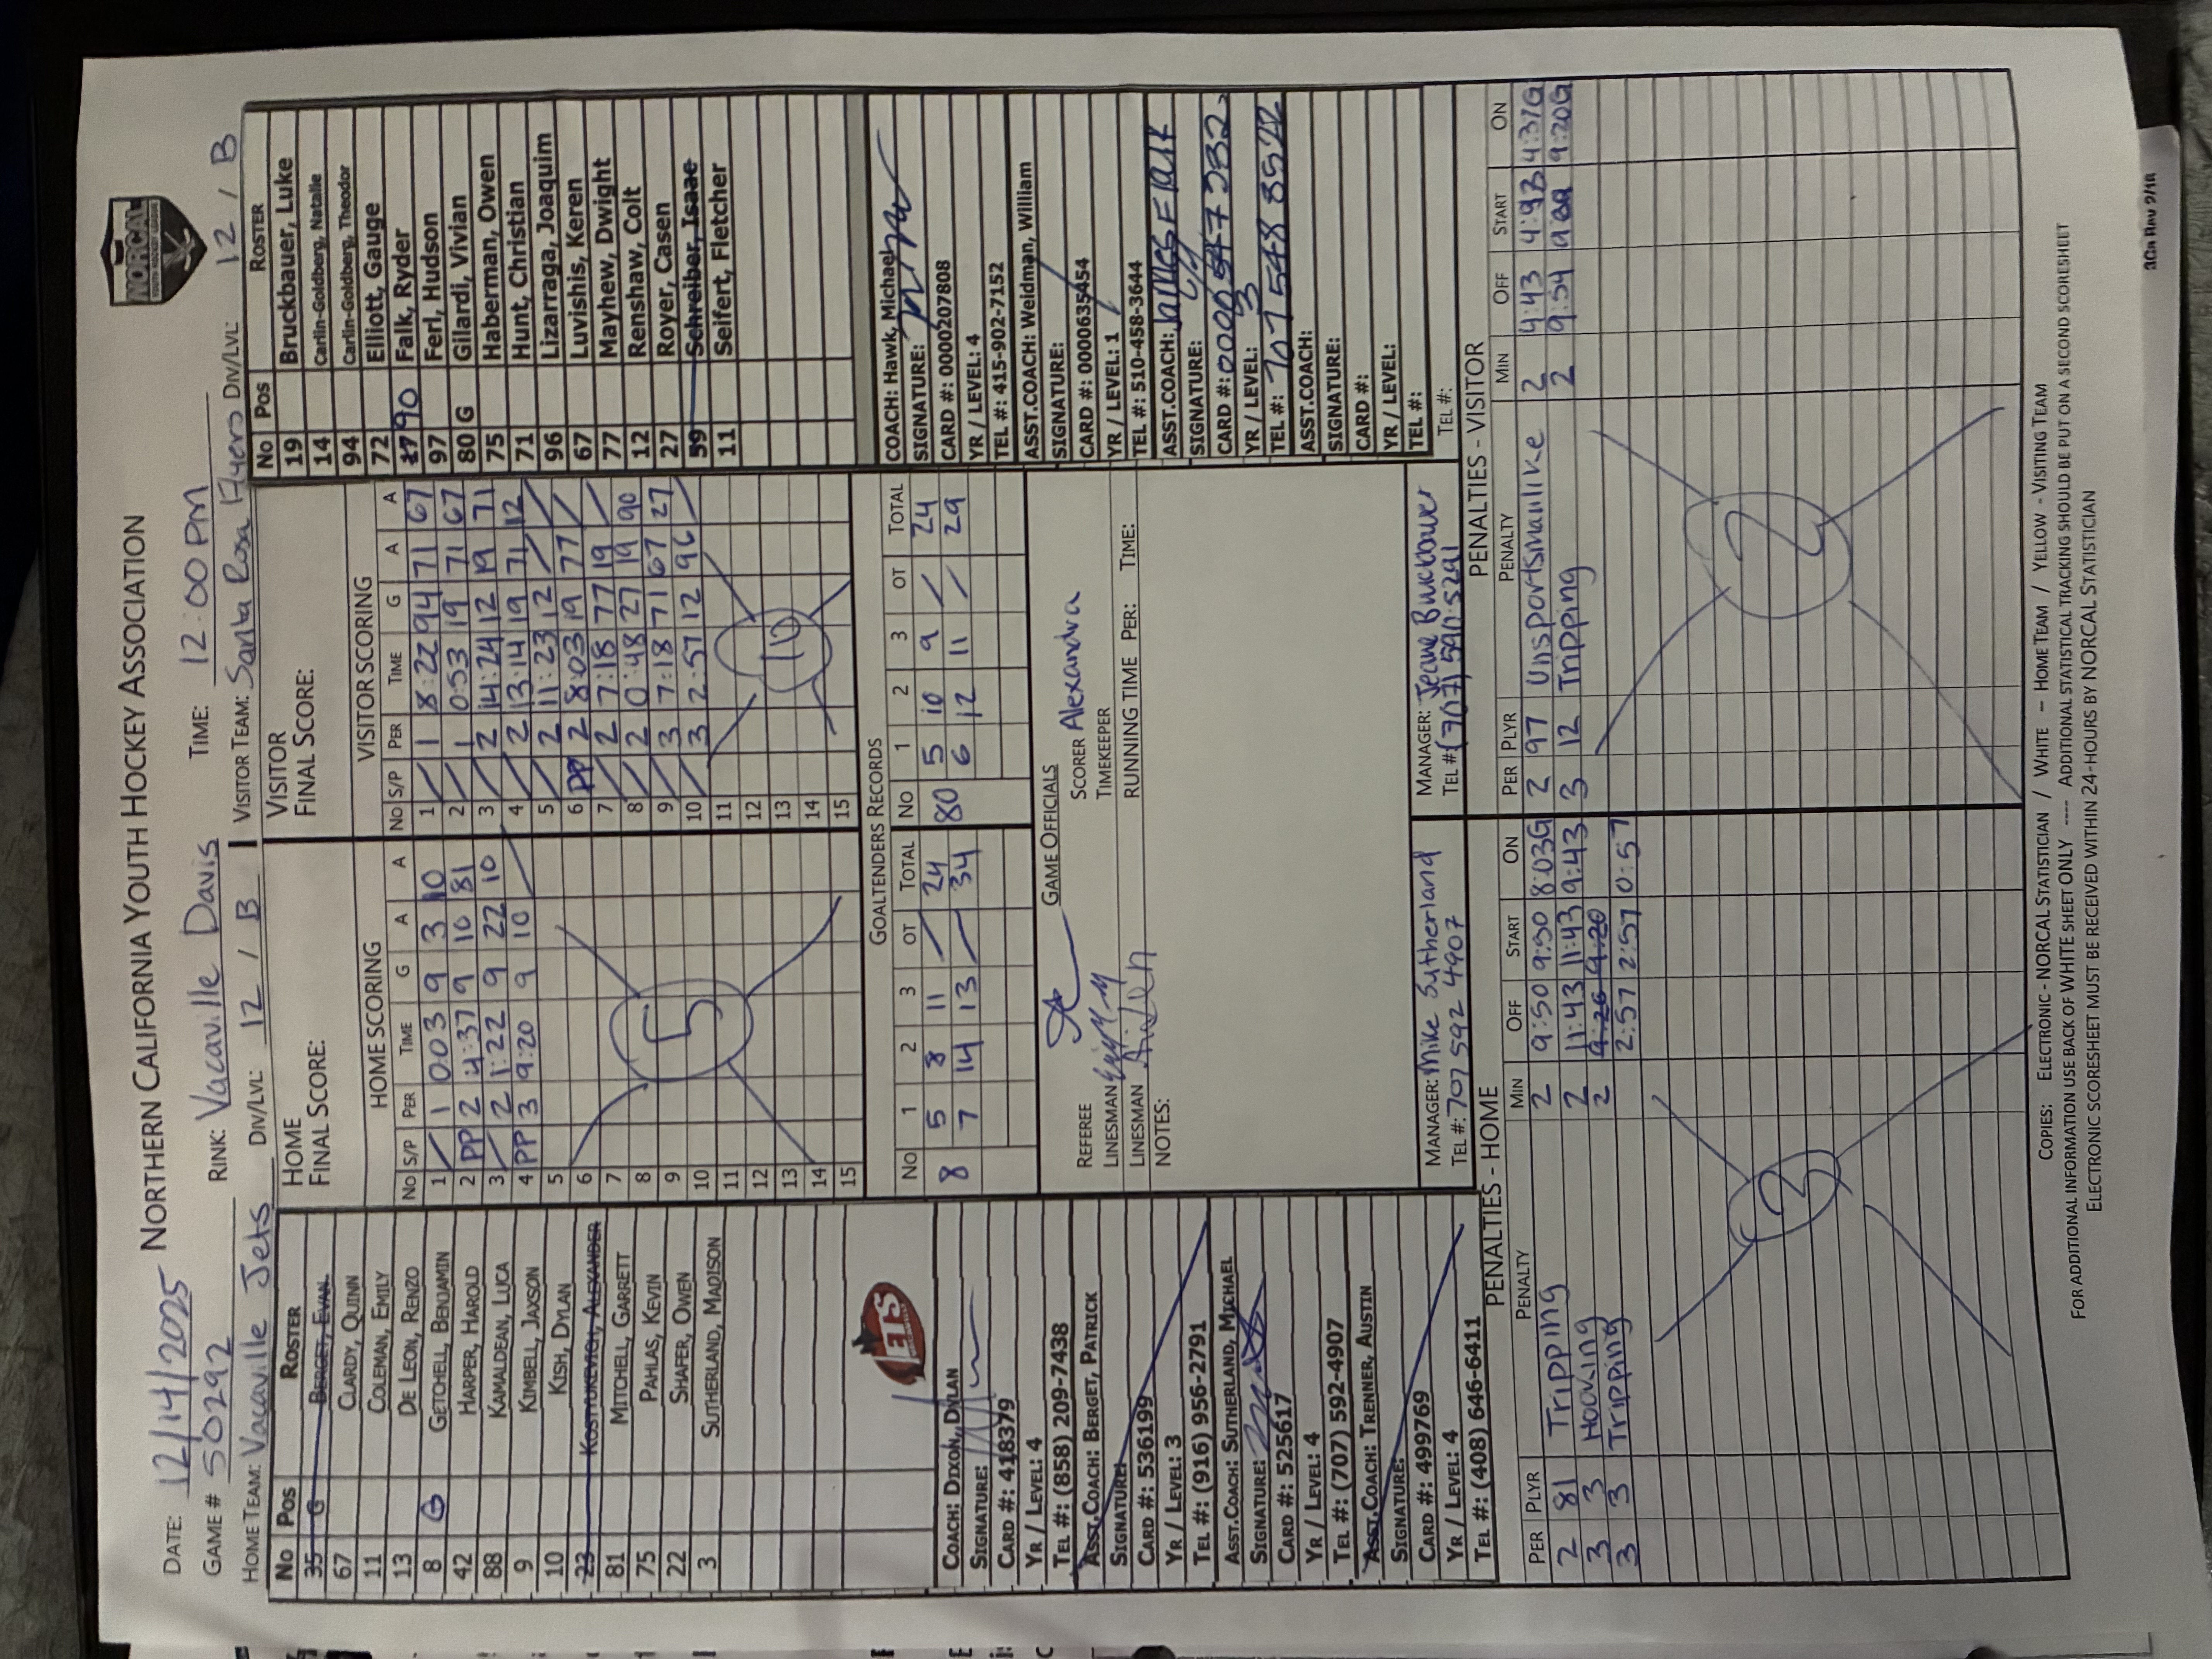 NORTHERN CALIFORNIA YOUTH HOCKEY ASSOCIATION
NORCAL
DATE: 12/14/2025
GAME # 50292 RINK: Vacaville Davis TIME: 12:00 PM
HOME TEAM: Vacaville Jets DIV/LVL: 12 / B
VISITOR TEAM: Santa Rosa Flyers DIV/LVL: 12 / B
No Pos ROSTER
35 G BERGET, EVAN
67 CLARDY, QUINN
11 COLEMAN, EMILY
13 DE LEON, RENZO
8 G GETCHELL, BENJAMIN
42 HARPER, HAROLD
88 KAMALDEAN, LUCA
9 KIMBELL, JAXSON
10 KISH, DYLAN
23 KOSTYUKEVICH, ALEXANDER
81 MITCHELL, GARRETT
75 PAHLAS, KEVIN
22 SHAFER, OWEN
3 SUTHERLAND, MADISON
JETS
COACH: DIXON, DYLAN
SIGNATURE:
CARD #: 418379
YR / LEVEL: 4
TEL #: (858) 209-7438
ASST.COACH: BERGET, PATRICK
SIGNATURE:
CARD #: 536199
YR / LEVEL: 3
TEL #: (916) 956-2791
ASST.COACH: SUTHERLAND, MICHAEL
SIGNATURE:
CARD #: 525617
YR / LEVEL: 4
TEL #: (707) 592-4907
ASST.COACH: TRENNER, AUSTIN
SIGNATURE:
CARD #: 499769
YR / LEVEL: 4
TEL #: (408) 646-6411
HOME
FINAL SCORE:
HOME SCORING
No S/P PER TIME G A A
1 / 1 0:03 9 3 10
2 PP 2 4:37 9 10 81
3 / 2 1:22 9 22 10
4 PP 3 9:20 9 10 /
5
6
7
8
9
10
11
12
13
14
15
5
VISITOR
FINAL SCORE:
VISITOR SCORING
No S/P PER TIME G A A
1 / 1 8:22 94 71 67
2 / 1 0:53 19 71 67
3 / 2 14:24 12 19 71
4 / 2 13:14 19 71 12
5 / 2 11:23 12 / /
6 PP 2 8:03 19 77 /
7 / 2 7:18 77 19 /
8 / 2 0:48 27 19 90
9 / 3 7:18 71 67 27
10 / 3 2:57 12 96 /
11
12
13
14
15
10
GOALTENDERS RECORDS
No 1 2 3 OT TOTAL No 1 2 3 OT TOTAL
8 5 8 11 / 24 80 5 10 9 / 24
7 14 13 / 34 6 12 11 / 29
GAME OFFICIALS
REFEREE SCORER Alexandra
LINESMAN TIMEKEEPER
LINESMAN RUNNING TIME PER: TIME:
NOTES:
MANAGER: Mike Sutherland
TEL #: 707 592 4907
MANAGER:
TEL # (707) 590 5291
No Pos ROSTER
19 Bruckbauer, Luke
14 Carlin-Goldberg, Natalie
94 Carlin-Goldberg, Theodor
72 Elliott, Gauge
17 90 Falk, Ryder
97 Ferl, Hudson
80 G Gilardi, Vivian
75 Haberman, Owen
71 Hunt, Christian
96 Lizarraga, Joaquim
67 Luvishis, Keren
77 Mayhew, Dwight
12 Renshaw, Colt
27 Royer, Casen
59 Schreiber, Isaac
11 Seifert, Fletcher
COACH: Hawk, Michael
SIGNATURE:
CARD #: 0000207808
YR / LEVEL: 4
TEL #: 415-902-7152
ASST.COACH: Weidman, William
SIGNATURE:
CARD #: 0000635454
YR / LEVEL: 1
TEL #: 510-458-3644
ASST.COACH: James Falk
SIGNATURE:
CARD #:
YR / LEVEL: 3
TEL #: 707 548 8522
ASST.COACH:
SIGNATURE:
CARD #:
YR / LEVEL:
TEL #:
TEL #:
PENALTIES - HOME
PER PLYR PENALTY MIN OFF START ON
2 81 Tripping 2 9:50 9:50 8:03G
3 3 Hooking 2 11:43 11:43 9:43
3 3 Tripping 2 9:20 9:20
2:57 2:57 0:57
3
PENALTIES - VISITOR
PER PLYR PENALTY MIN OFF START ON
2 97 Unsportsmanlike 2 4:43 4:43 4:37G
3 12 Tripping 2 9:54 9:20G
2
COPIES: ELECTRONIC - NORCAL STATISTICIAN / WHITE - HOME TEAM / YELLOW - VISITING TEAM
FOR ADDITIONAL INFORMATION USE BACK OF WHITE SHEET ONLY ---- ADDITIONAL STATISTICAL TRACKING SHOULD BE PUT ON A SECOND SCORESHEET
ELECTRONIC SCORESHEET MUST BE RECEIVED WITHIN 24-HOURS BY NORCAL STATISTICIAN